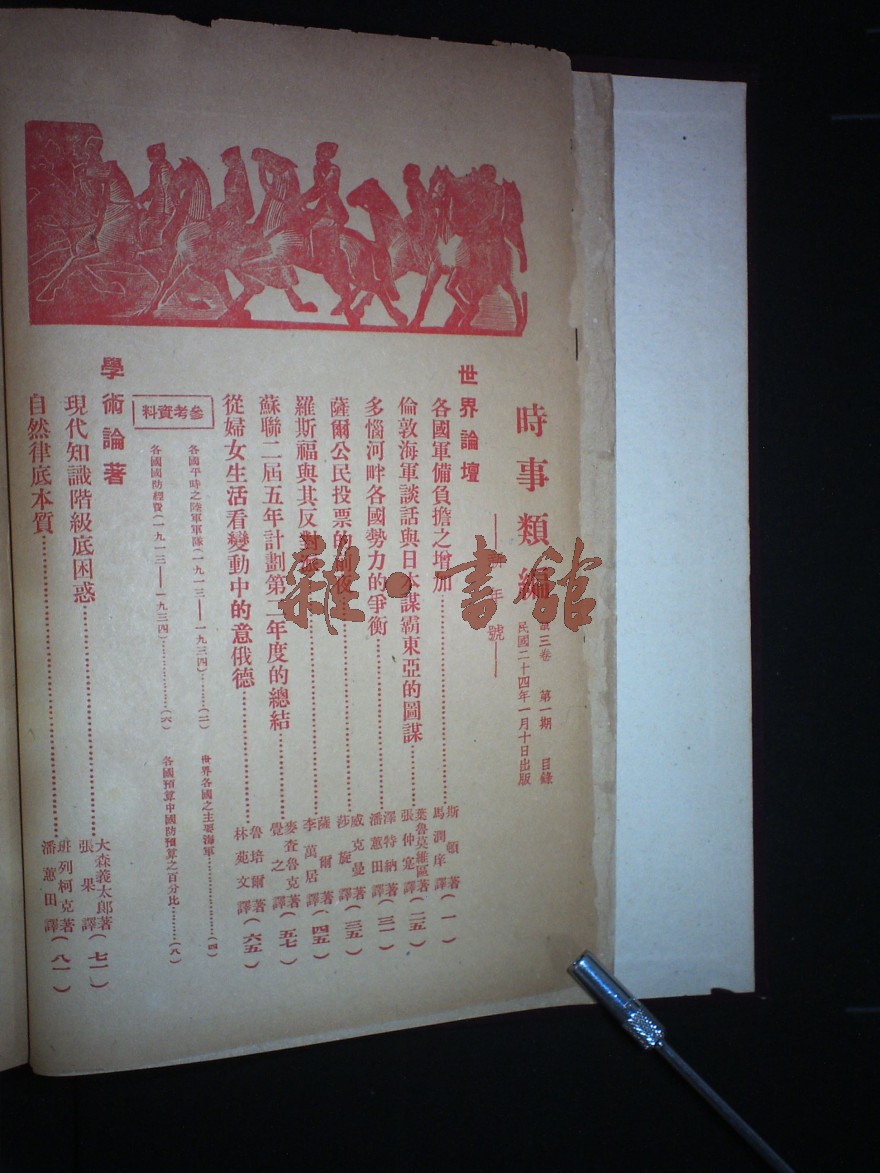 時事類編
——新年號——
第三卷 第一期 目錄
民國二十四年一月十日出版
世界論壇
各國軍備負擔之增加……斯頓著 馬潤庠譯(一)
倫敦海軍談話與日本謀霸東亞的圖謀……葉魯莫維區著 張仲寔譯(二五)
多惱河畔各國勢力的爭衡……澤特納著 潘蕙田譯(三一)
薩爾公民投票的前夜……威克曼著 莎旋譯(三五)
羅斯福與其反對派……薩爾著 李萬居譯(四五)
蘇聯二屆五年計劃第二年度的總結……麥查魯克著 覺之譯(五七)
從婦女生活看變動中的意俄德……魯培爾著 林苑文譯(六五)
參考資料
各國平時之陸軍軍隊(一九一三——一九三四)……(二)
世界各國之主要海軍……(四)
各國國防經費(一九一三——一九三四)……(六)
各國預算中國防預算之百分比……(八)
學術論著
現代知識階級底困惑……大森義太郎著 張果譯(七一)
自然律底本質……班列柯克著 潘蕙田譯(八一)
雜·書館